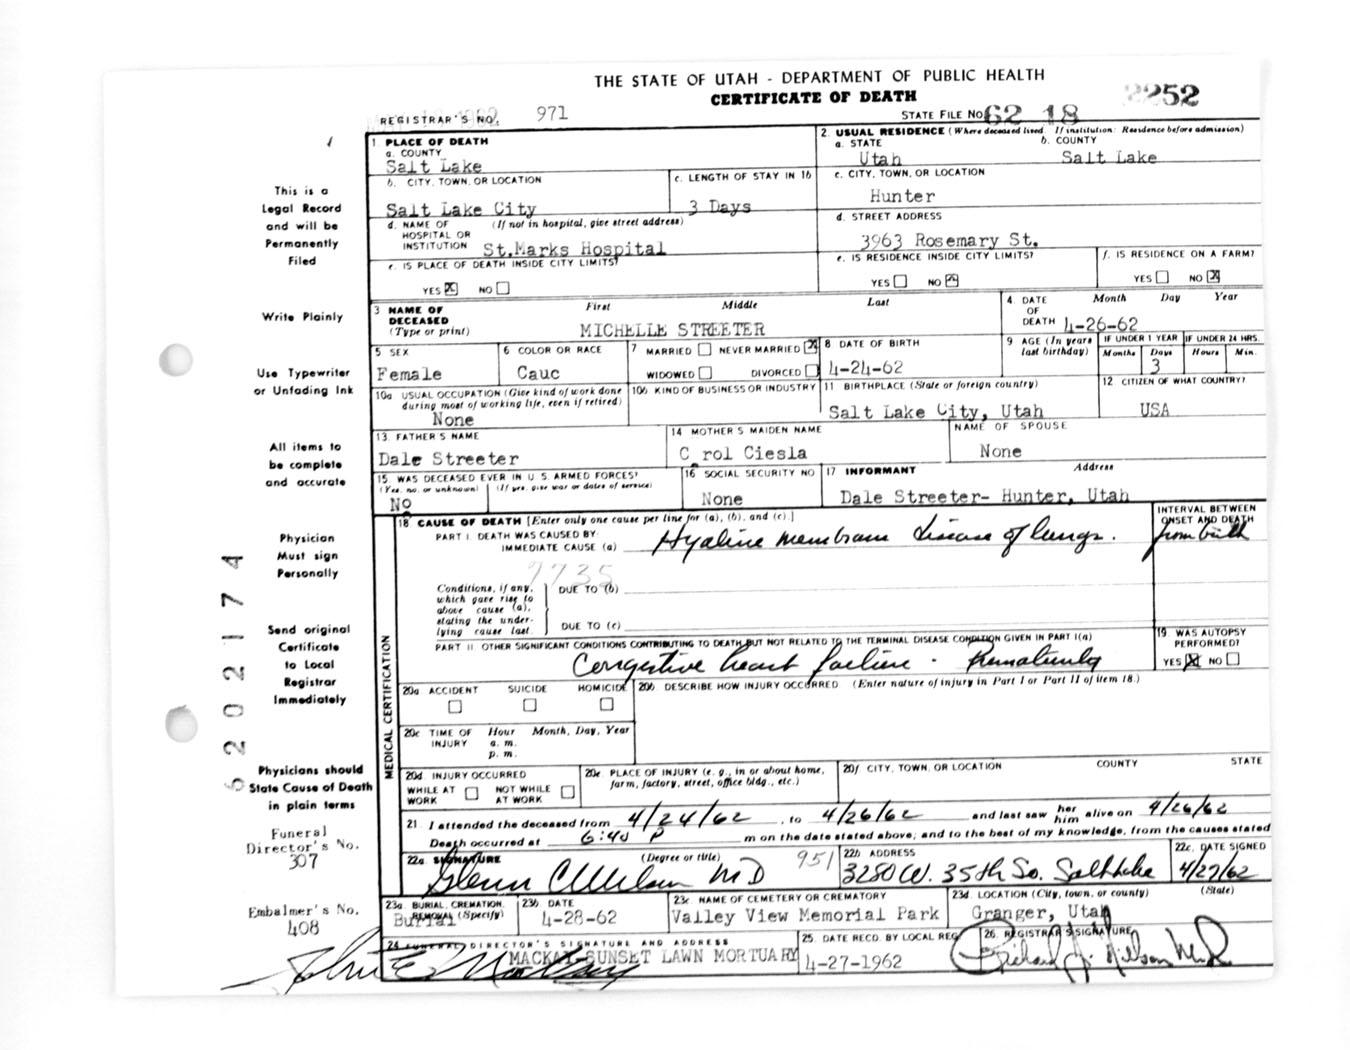 THE STATE OF UTAH - DEPARTMENT OF PUBLIC HEALTH
CERTIFICATE OF DEATH
2252
REGISTRAR'S NO. 971
STATE FILE NO. 62 18
This is a
Legal Record
and will be
Permanently
Filed
Write Plainly
Use Typewriter
or Unfading Ink
All items to
be complete
and accurate
Physician
Must sign
Personally
Send original
Certificate
to Local
Registrar
Immediately
Physicians should
State Cause of Death
in plain terms
Funeral
Director's No.
307
Embalmer's No.
408
6202174
1 PLACE OF DEATH
a. COUNTY
Salt Lake
b. CITY, TOWN, OR LOCATION
Salt Lake City
c. LENGTH OF STAY IN 1b
3 Days
d. NAME OF HOSPITAL OR INSTITUTION (If not in hospital, give street address)
St.Marks Hospital
e. IS PLACE OF DEATH INSIDE CITY LIMITS?
YES X NO
2. USUAL RESIDENCE (Where deceased lived. If institution: Residence before admission)
a. STATE
Utah
b. COUNTY
Salt Lake
c. CITY, TOWN, OR LOCATION
Hunter
d. STREET ADDRESS
3963 Rosemary St.
e. IS RESIDENCE INSIDE CITY LIMITS?
YES NO X
f. IS RESIDENCE ON A FARM?
YES NO X
3 NAME OF DECEASED (Type or print)
First Middle Last
MICHELLE STREETER
4. DATE OF DEATH Month Day Year
4-26-62
5 SEX
Female
6 COLOR OR RACE
Cauc
7 MARRIED NEVER MARRIED X
WIDOWED DIVORCED
8 DATE OF BIRTH
4-24-62
9 AGE (In years last birthday)
IF UNDER 1 YEAR
Months Days
3
IF UNDER 24 HRS.
Hours Min.
10a USUAL OCCUPATION (Give kind of work done during most of working life, even if retired)
None
10b KIND OF BUSINESS OR INDUSTRY
11 BIRTHPLACE (State or foreign country)
Salt Lake City, Utah
12 CITIZEN OF WHAT COUNTRY?
USA
13. FATHER'S NAME
Dale Streeter
14 MOTHER'S MAIDEN NAME
C rol Ciesla
NAME OF SPOUSE
None
15 WAS DECEASED EVER IN U.S. ARMED FORCES?
(Yes, no, or unknown) (If yes, give war or dates of service)
No
16 SOCIAL SECURITY NO
None
17 INFORMANT Address
Dale Streeter- Hunter, Utah
MEDICAL CERTIFICATION
18 CAUSE OF DEATH [Enter only one cause per line for (a), (b), and (c).]
PART I. DEATH WAS CAUSED BY:
IMMEDIATE CAUSE (a) Hyaline membrane disease of lungs.
INTERVAL BETWEEN
ONSET AND DEATH
from birth
7735
Conditions, if any, which gave rise to above cause (a), stating the underlying cause last.
DUE TO (b)
DUE TO (c)
PART II OTHER SIGNIFICANT CONDITIONS CONTRIBUTING TO DEATH BUT NOT RELATED TO THE TERMINAL DISEASE CONDITION GIVEN IN PART I(a)
Congestive heart failure - Prematurity
19 WAS AUTOPSY PERFORMED?
YES X NO
20a ACCIDENT SUICIDE HOMICIDE
20b DESCRIBE HOW INJURY OCCURRED (Enter nature of injury in Part I or Part II of item 18.)
20c TIME OF INJURY Hour Month, Day, Year
a. m.
p. m.
20d. INJURY OCCURRED
WHILE AT WORK NOT WHILE AT WORK
20e. PLACE OF INJURY (e. g., in or about home, farm, factory, street, office bldg., etc.)
20f. CITY, TOWN, OR LOCATION COUNTY STATE
21 I attended the deceased from 4/24/62, to 4/26/62 and last saw her him alive on 4/26/62
Death occurred at 6:40 P m on the date stated above; and to the best of my knowledge, from the causes stated
22a. SIGNATURE (Degree or title) 951
Glenn C Wilson MD
22b ADDRESS
3280 W. 35th So. Salt Lake
22c. DATE SIGNED
4/27/62
23a BURIAL, CREMATION, REMOVAL (Specify)
Burial
23b DATE
4-28-62
23c NAME OF CEMETERY OR CREMATORY
Valley View Memorial Park
23d. LOCATION (City, town, or county) (State)
Granger, Utah
24 FUNERAL DIRECTOR'S SIGNATURE AND ADDRESS
MACKAY-SUNSET LAWN MORTUARY
25. DATE RECD. BY LOCAL REG
4-27-1962
26. REGISTRAR'S SIGNATURE